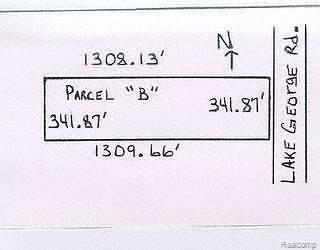 1308.13'
N
PARCEL "B"
341.87'
341.87'
1309.66'
LAKE GEORGE RD.
Realcomp